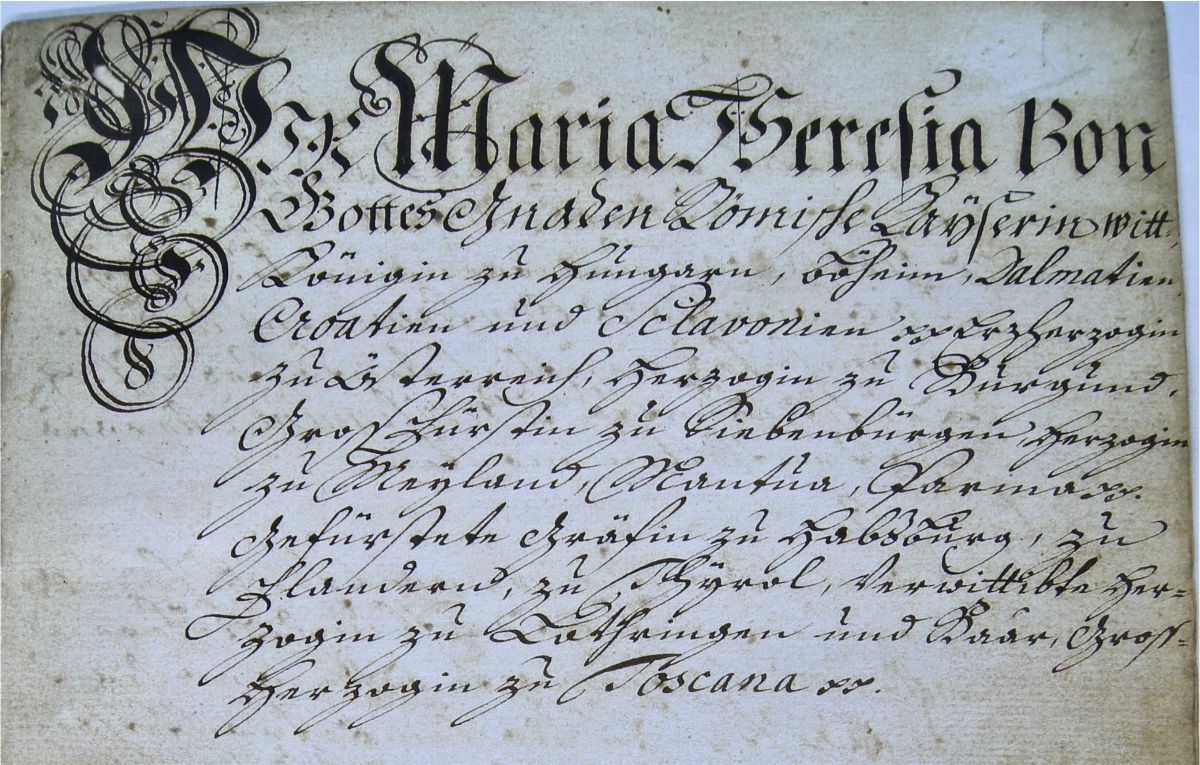 Wir Maria Theresia Von
Gottes Gnaden Römische Kayserin witt,
Königin zu Hungarn, Böheim, Dalmatien,
Croatien und Sclavonien p.p. Erzherzogin
zu Österreich, Herzogin zu Burgund,
Grosfürstin zu Siebenbürgen, Herzogin
zu Meyland, Mantua, Parma p.p.
Gefürstete Gräfin zu Habsburg, zu
Flandern, zu Thyrol, Verwittibte Her=
zogin zu Lothringen und Baar, Gross=
Herzogin zu Toscana p.p.